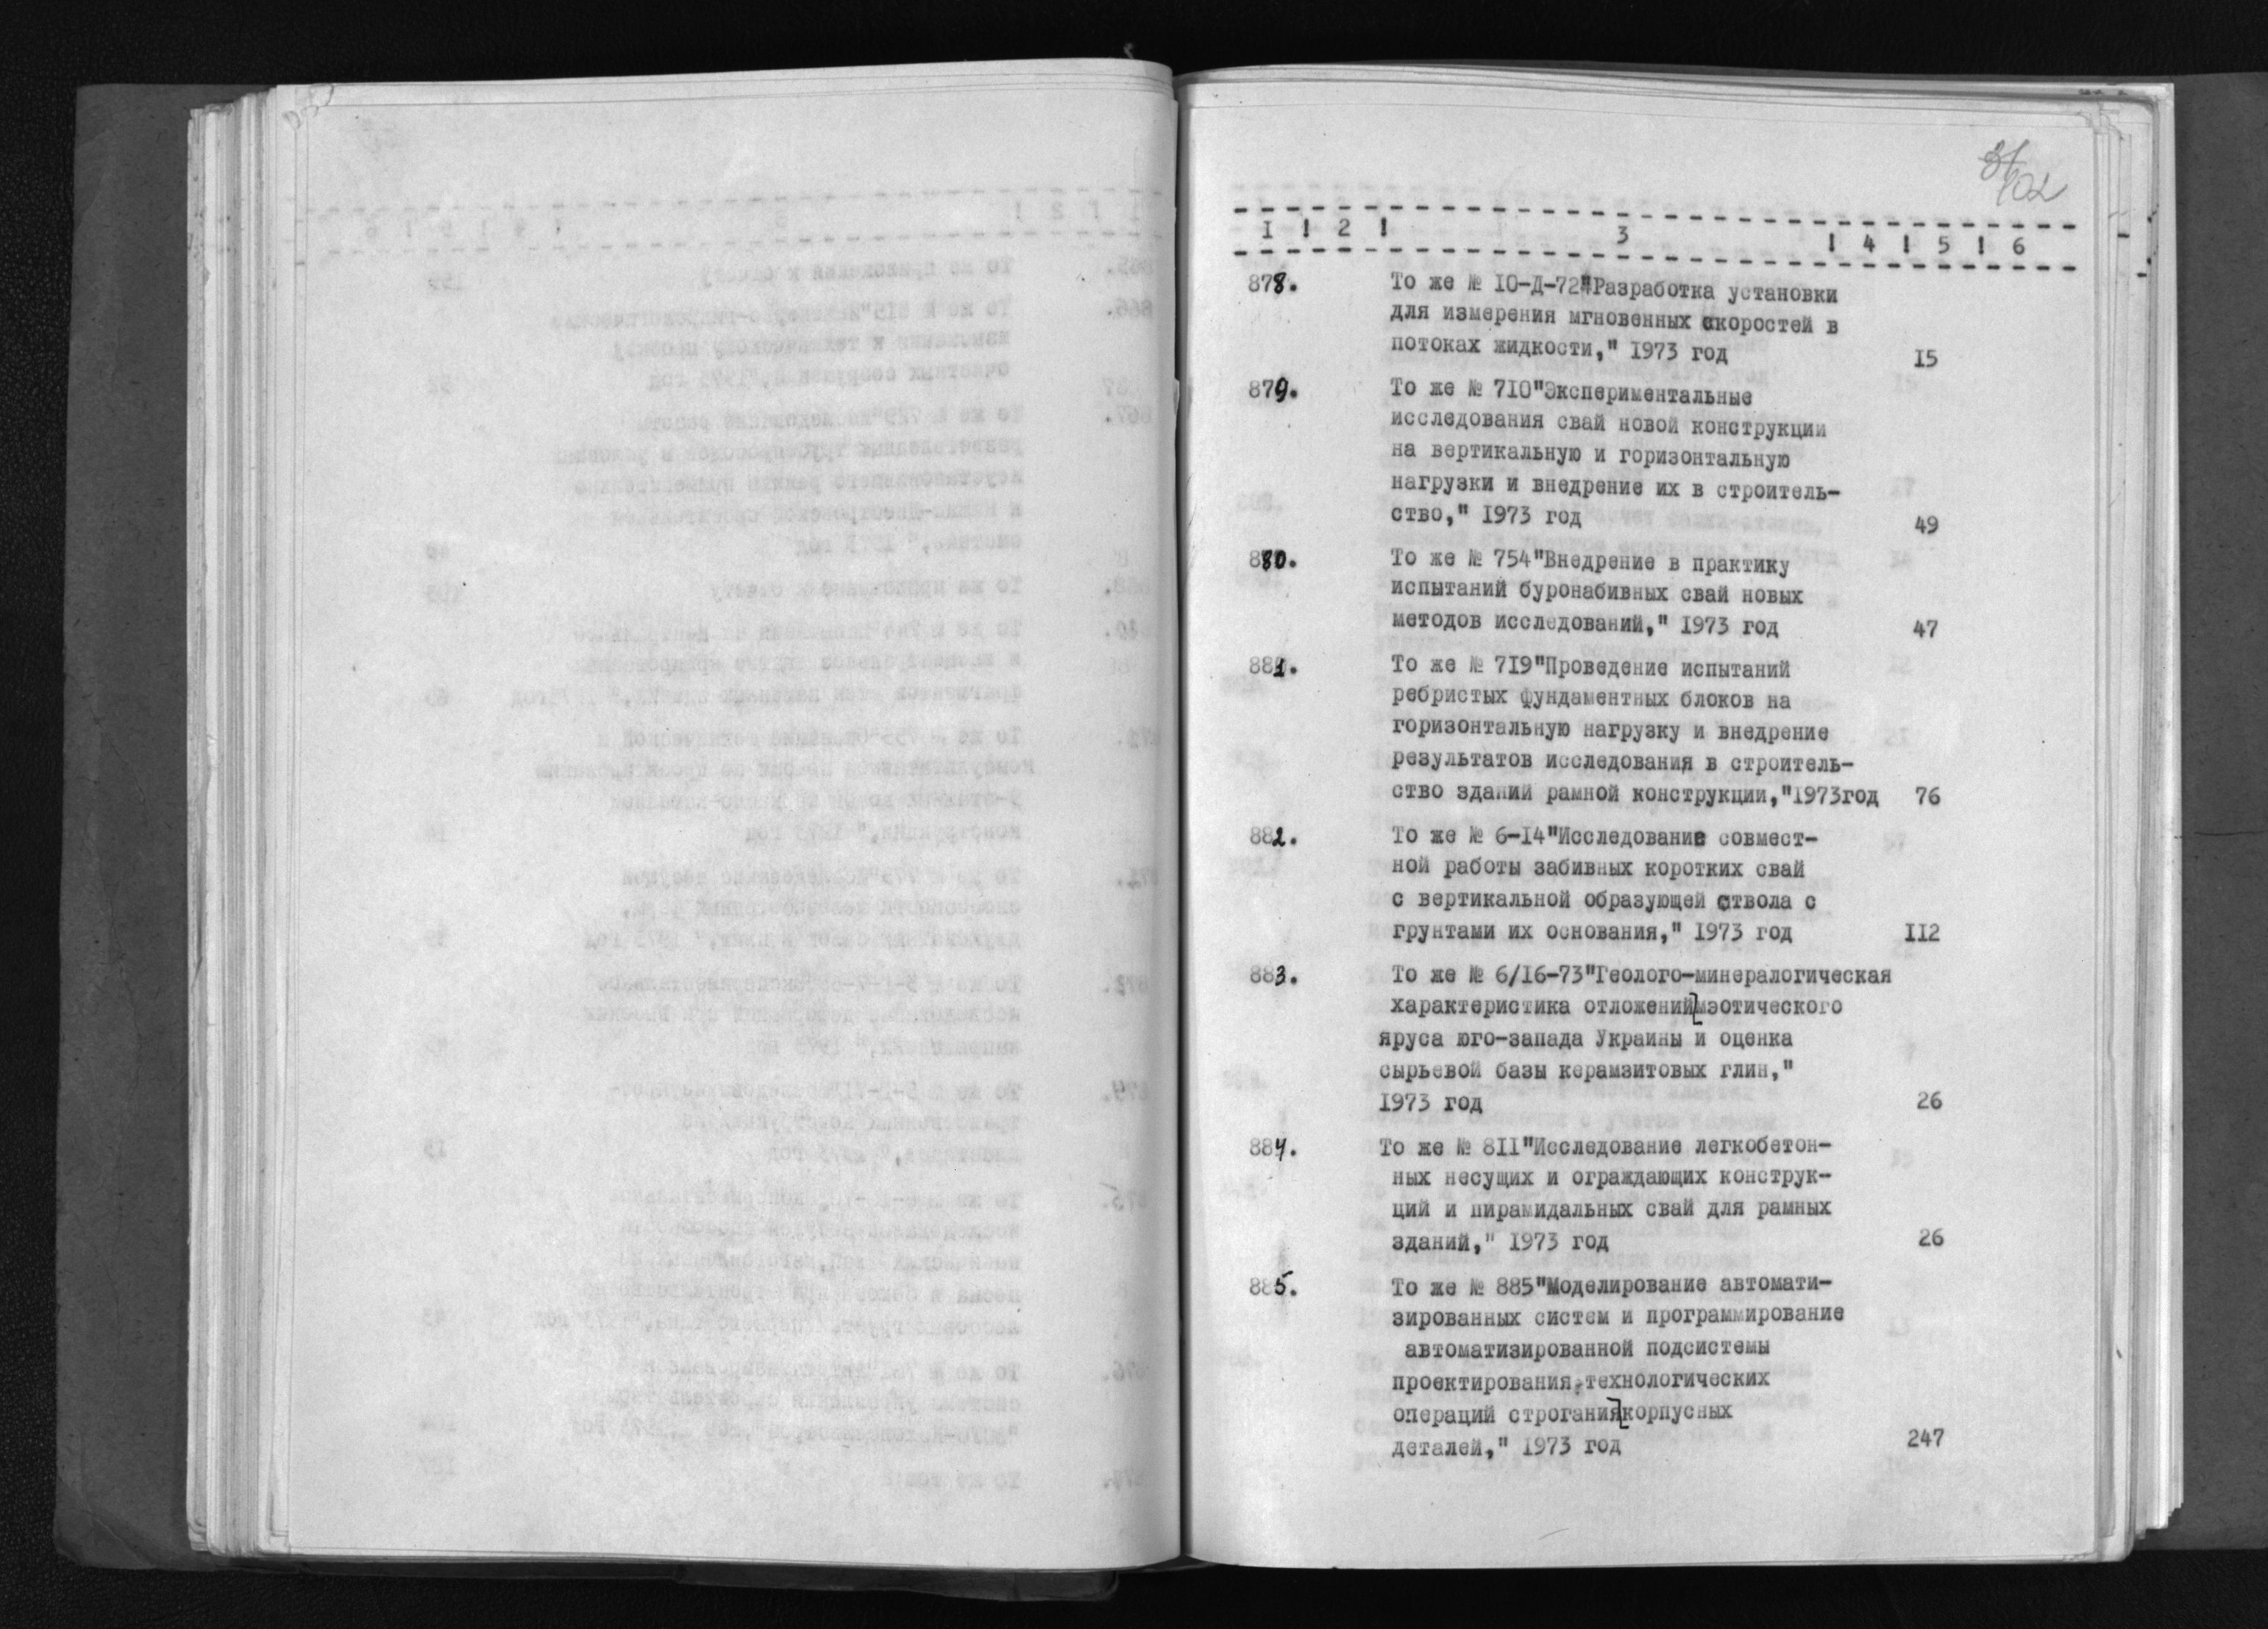 102
I ! 2 ! 3 ! 4 ! 5 ! 6
878. То же № 10-Д-72"Разработка установки
для измерения мгновенных скоростей в
потоках жидкости," 1973 год 15
879. То же № 710"Экспериментальные
исследования свай новой конструкции
на вертикальную и горизонтальную
нагрузки и внедрение их в строитель-
ство," 1973 год 49
880. То же № 754"Внедрение в практику
испытаний буронабивных свай новых
методов исследований," 1973 год 47
881. То же № 719"Проведение испытаний
ребристых фундаментных блоков на
горизонтальную нагрузку и внедрение
результатов исследования в строитель-
ство зданий рамной конструкции,"1973год 76
882. То же № 6-14"Исследование совмест-
ной работы забивных коротких свай
с вертикальной образующей ствола с
грунтами их основания," 1973 год 112
883. То же № 6/16-73"Геолого-минералогическая
характеристика отложений мэотического
яруса юго-запада Украины и оценка
сырьевой базы керамзитовых глин,"
1973 год 26
884. То же № 811"Исследование легкобетон-
ных несущих и ограждающих конструк-
ций и пирамидальных свай для рамных
зданий," 1973 год 26
885. То же № 885"Моделирование автомати-
зированных систем и программирование
автоматизированной подсистемы
проектирования технологических
операций строгания корпусных
деталей," 1973 год 247